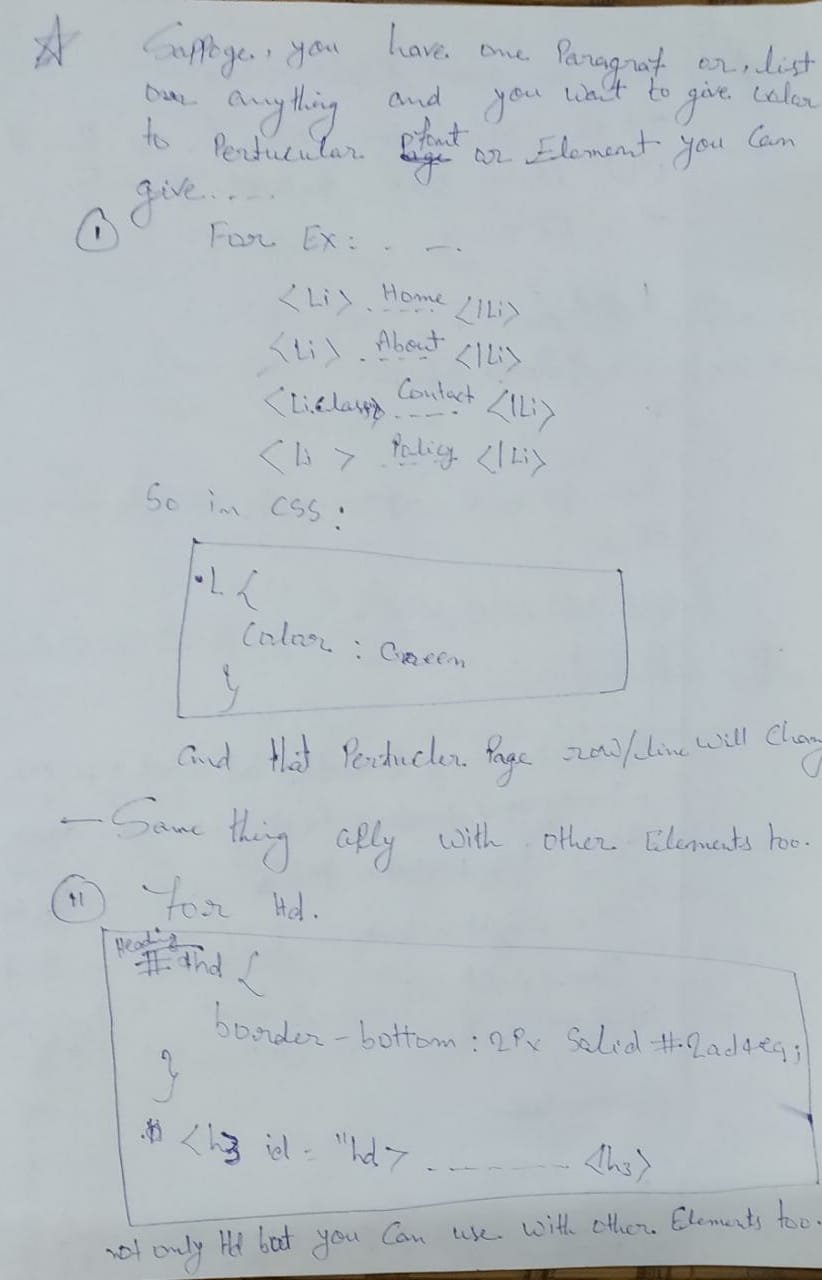 Suppoge., you have one Paragraf or, list
our anything and you want to give color
to Pertucular font or Element you Can
give.....
① For Ex: . —.
<Li> . Home </Li>
<Li> . About </Li>
<Li.class> Contact </Li>
<Li> Policy </Li>
So in CSS:
.L {
Color : Green
}
and that Pertucler Page row/line will Chang
— Same thing aply with other Elements too.
⑪ For Hd.
Heading
#hd {
boorder-bottom : 2Px Solid #2ad4eq;
}
<h3 id = "hd> - - - - - - - <h3>
not only Hd bout you Can use with other Elements too.